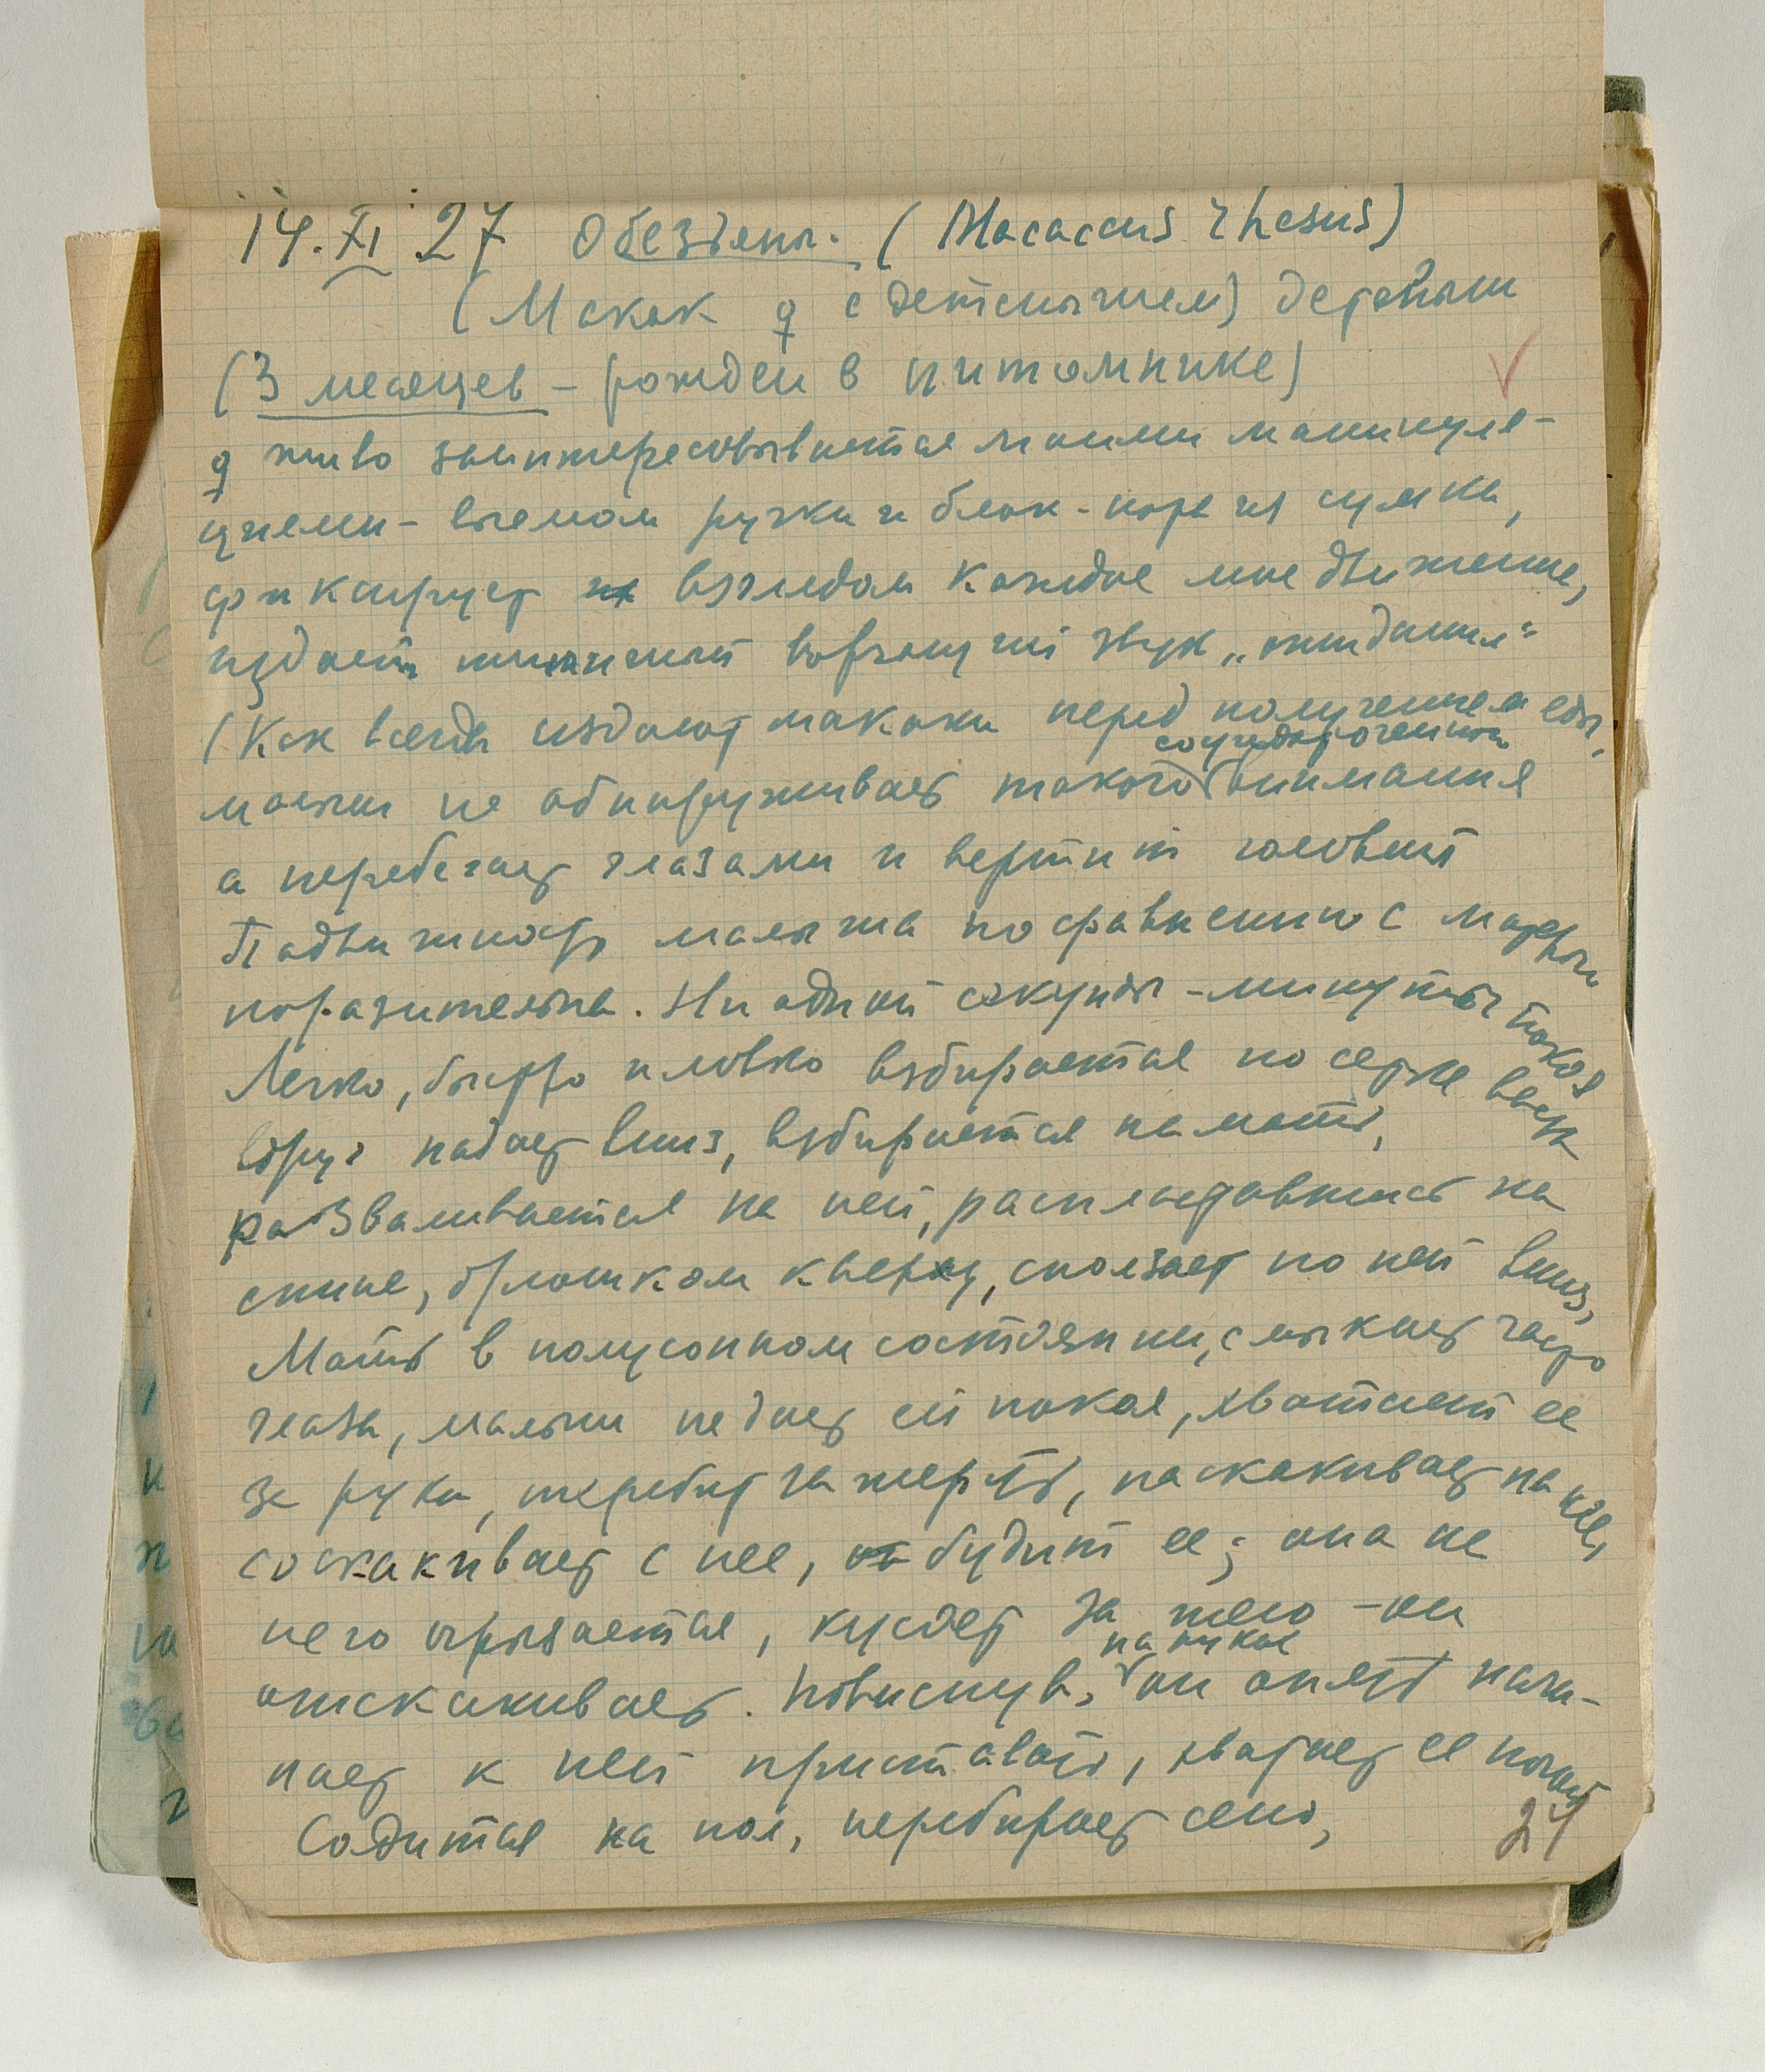 14.XI 27 Обезьяны. (Macaccus rhesus)
(Макак ♀ с детенышем) детеныш
(3 месяцев – рожден в питомнике)
♀ живо заинтересовывается моими манипуля-
циями – выемом ручки и блок-нота из сумки,
фиксирует взглядом каждое мое движение,
издает типичный ворчащий звук „ожидания“
(как всегда издают макаки перед получением еды,
малыш не обнаруживает такого сосредоточенного внимания
а перебегает глазами и вертит головой
Подвижность малыша по сравнению с матерью
поразительна. Ни одной секунды – минуты покоя
Легко, быстро и ловко взбирается по сетке вверх
вдруг падает вниз, взбирается на мать,
разваливается на ней, распластавшись на
спине, брюшком кверху, сползает по ней вниз,
Мать в полусонном состоянии, смыкает часто
глаза, малыш не дает ей покоя, хватает ее
за руки, теребит за шерсть, наскакивает на нее,
соскакивает с нее, будит ее; она на
него огрызается, кусает за тело – он
отскакивает. Повиснув, он опять начи-
нает к ней приставать, хватает ее ногой
Садится на пол, перебирает сено,
24